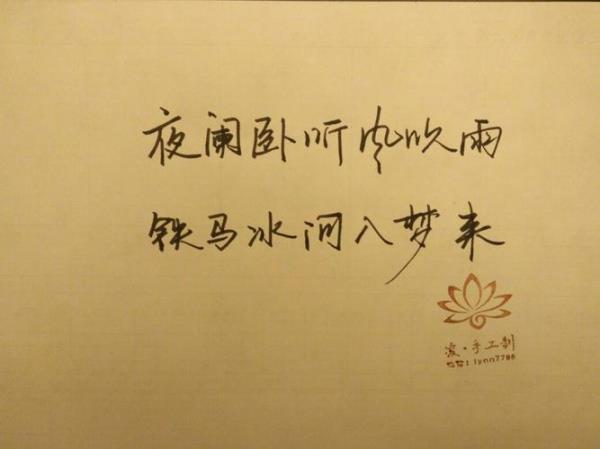 夜阑卧听风吹雨
铁马冰河入梦来
爱·手工制
lynn7786